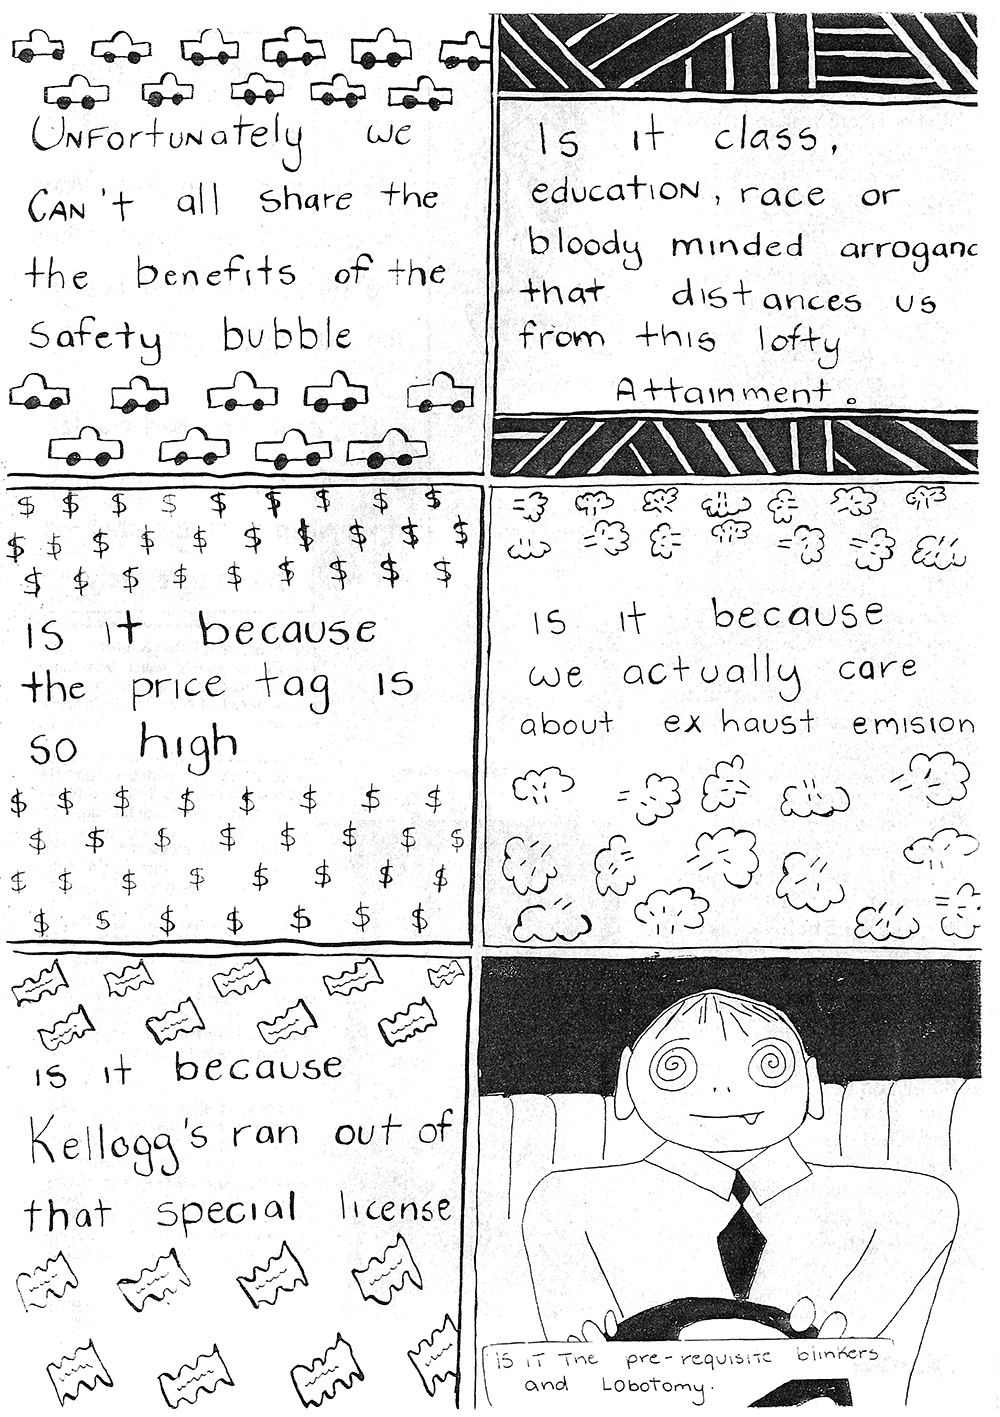 Unfortunately we
can't all share the
the benefits of the
safety bubble
Is it class,
education, race or
bloody minded arroganc
that distances us
from this lofty
Attainment.
is it because
the price tag is
so high
is it because
we actually care
about exhaust emision
is it because
Kellogg's ran out of
that special license
is it the pre-requisite blinkers
and Lobotomy.